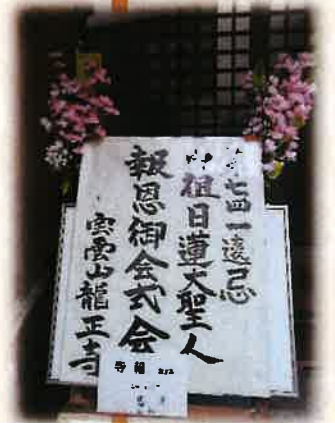 七四一遠忌
祖日蓮大聖人
報恩御会式会
宝雲山龍正寺